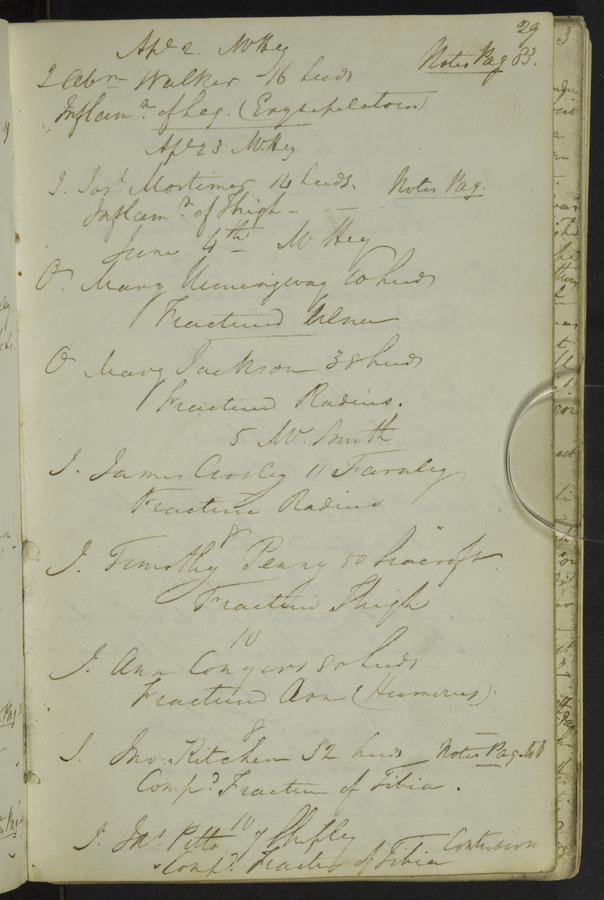 29
Apl 2. Mr Hey
I Abm Walker 16 Leeds Notes Pag 83.
Inflamn. of Leg. (Erysipelatous)
Apl 23 Mr Hey
I. Jas. Mortimer 14 Leeds. Notes Pag.
Inflamn. of Thigh -
June 4th Mr Hey
O. Mary Hemingway 60 Leeds
Fractured Ulna
O Mary Jackson 38 Leeds
Fractured Radius.
5 Mr. Smith
I. James 11 Farnley
Fracture Radius
8
I. Timothy Penny 50
Fracture Thigh
10
I. Ann Conyers 50 Leeds
Fractured Arm (Humerus).
8
I. Jno. Kitchen 32 Leeds Notes Pag.
Compd. Fracture of Tibia.
10
I. Jas Pitts 7 Shipley Contusion
Compd. Fracture of Tibia